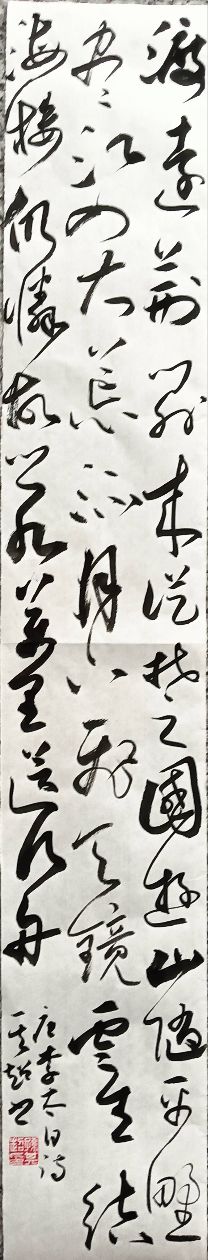 渡遠荊門外来從楚國遊山隨平野
盡江入大荒流月下飛天鏡雲生結
海樓仍憐故鄉水萬里送行舟
唐李太白詩
書